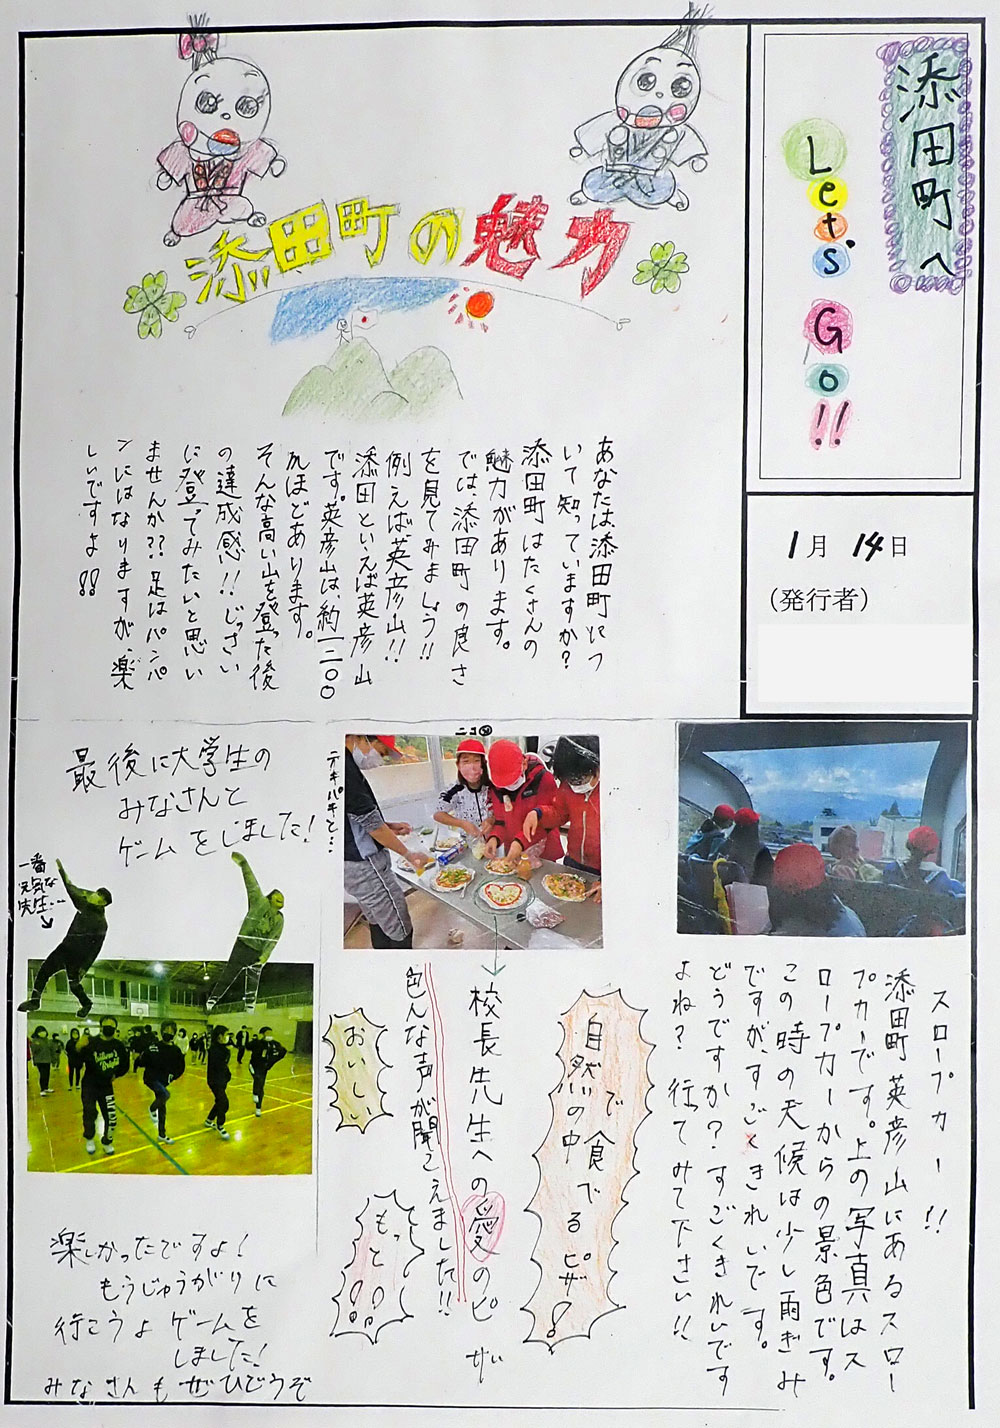 添田町へ
Let's Go!!
1月 14日
（発行者）
添田町の魅力
あなたは、添田町につ
いて知っていますか？
添田町はたくさんの
魅力があります。
では、添田町の良さ
を見てみましょう!!
例えば英彦山!!
添田といえば英彦山
です。英彦山は、約一二〇〇
ｍほどあります。
そんな高い山を登った後
の達成感!!じっさい
に登ってみたいと思い
ませんか??足はパンパ
ンにはなりますが、楽
しいですよ!!
スロープカー!!
添田町英彦山にあるスロー
プカーです。上の写真はス
ロープカーからの景色です。
この時の天候は少し雨ぎみ
ですが、すごくきれいです。
どうですか？すごくきれいです
よね？行ってみて下さい!!
ニコ
テキパキと…
自然の中
で食べる
ピザ!
校長先生への愛のピザ
色んな声が聞こえました!!
おいしい
もっと!!
最後に大学生の
みなさんと
ゲームをしました!
一番
元気な
先生…
楽しかったですよ!
もうじゅうがりに
行こうよゲームを
しました!
みなさんもぜひどうぞ